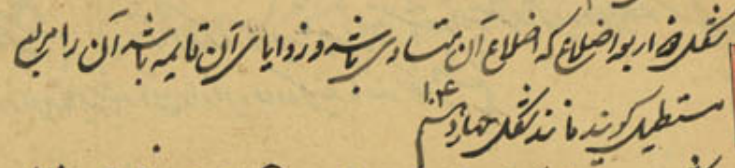 شکل ذو اربعه اضلاع که اضلاع آن متساوی باشد و زوایای آن قایمه باشد آن را مربع
مستطیل گویند مانند شکل چهاردهم ۱۴